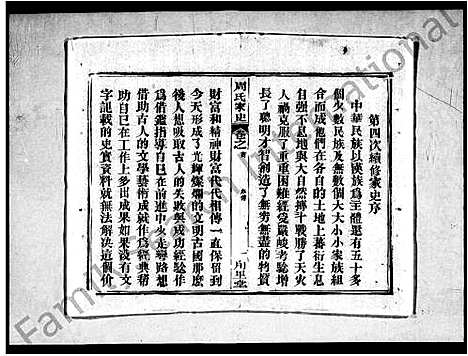 第四次續修家史序
中華民族以漢族爲主體還有五十多
個少數民族及無數個大大小小家族組
合而成他們在各自的土地上蕃衍生息
自强不息地與大自然搏斗戰勝了天灾
人禍克服了重重困難經受嚴峻考驗增
長了聰明才智創造了無窮無盡的物質
周氏家史
卷之一
序
財富和精神財富代代相傳一直保留到
今天形成了光輝燦爛的文明古國那麽
後人想吸取古人的失敗與成功經驗作
爲借鑑指導自已在前進中少走彎路想
借助古人的文學藝術成就作爲經典幫
助自已在工作上多出成果如果没有文
字記載的史實資料就無法解决這個價
FamilySearch International